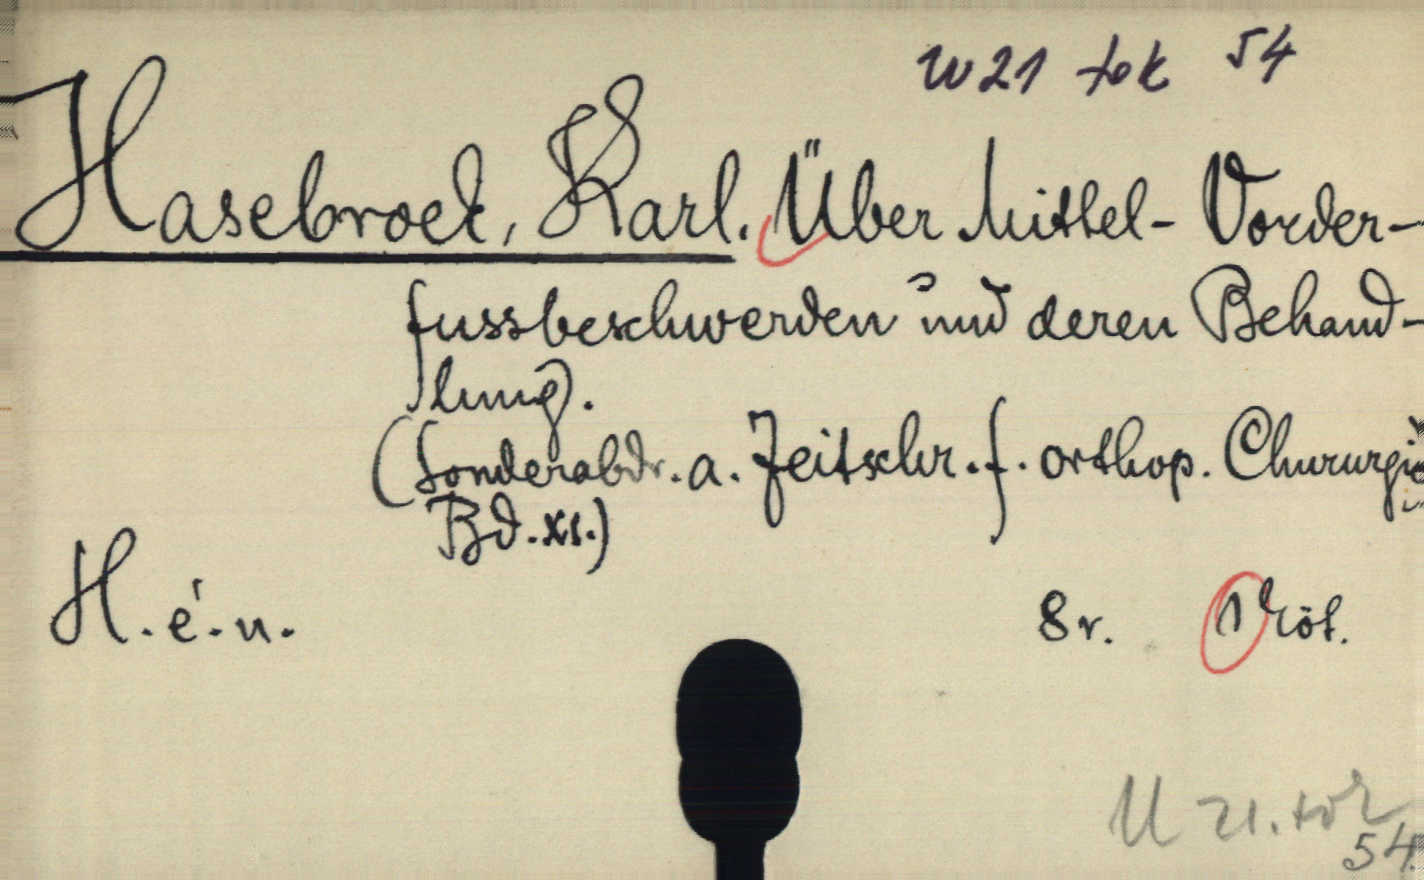 W21 tok 54
Hasebroek, Karl. Über Mittel- Vorder-
fussbeschwerden und deren Behand-
lung.
(Sonderabdr. a. Zeitschr. f. orthop. Chirurgie
Bd. XI.)
H. é. n. 8r. 1 röt.
U 21. tok
54